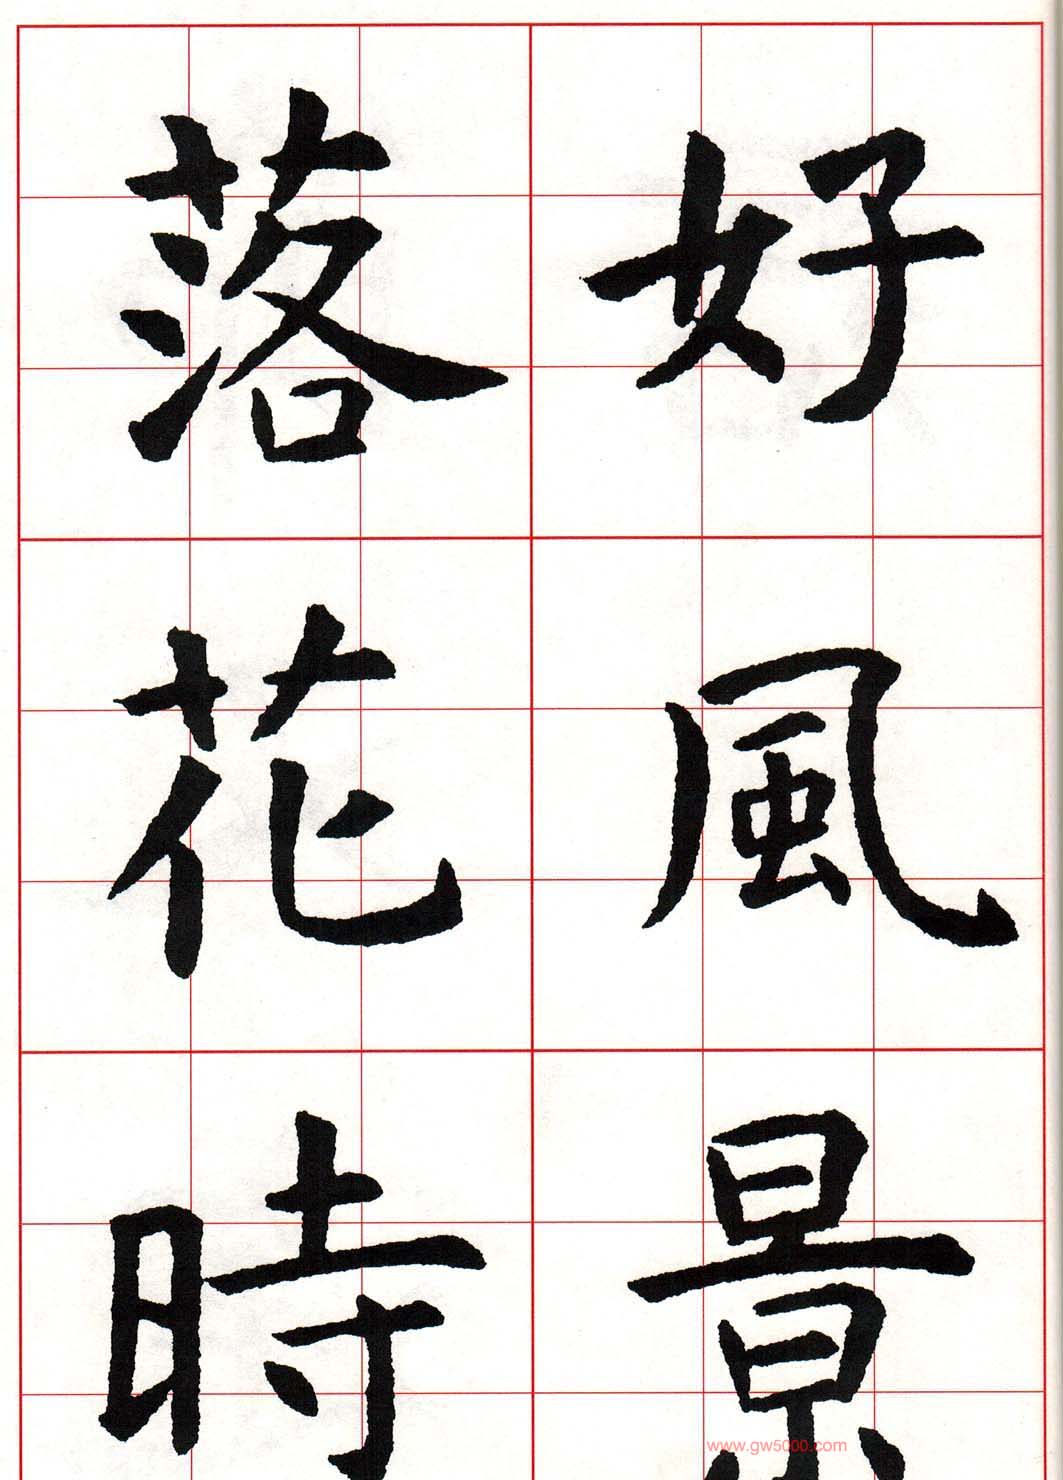 好風景
落花時
www.gw5000.com